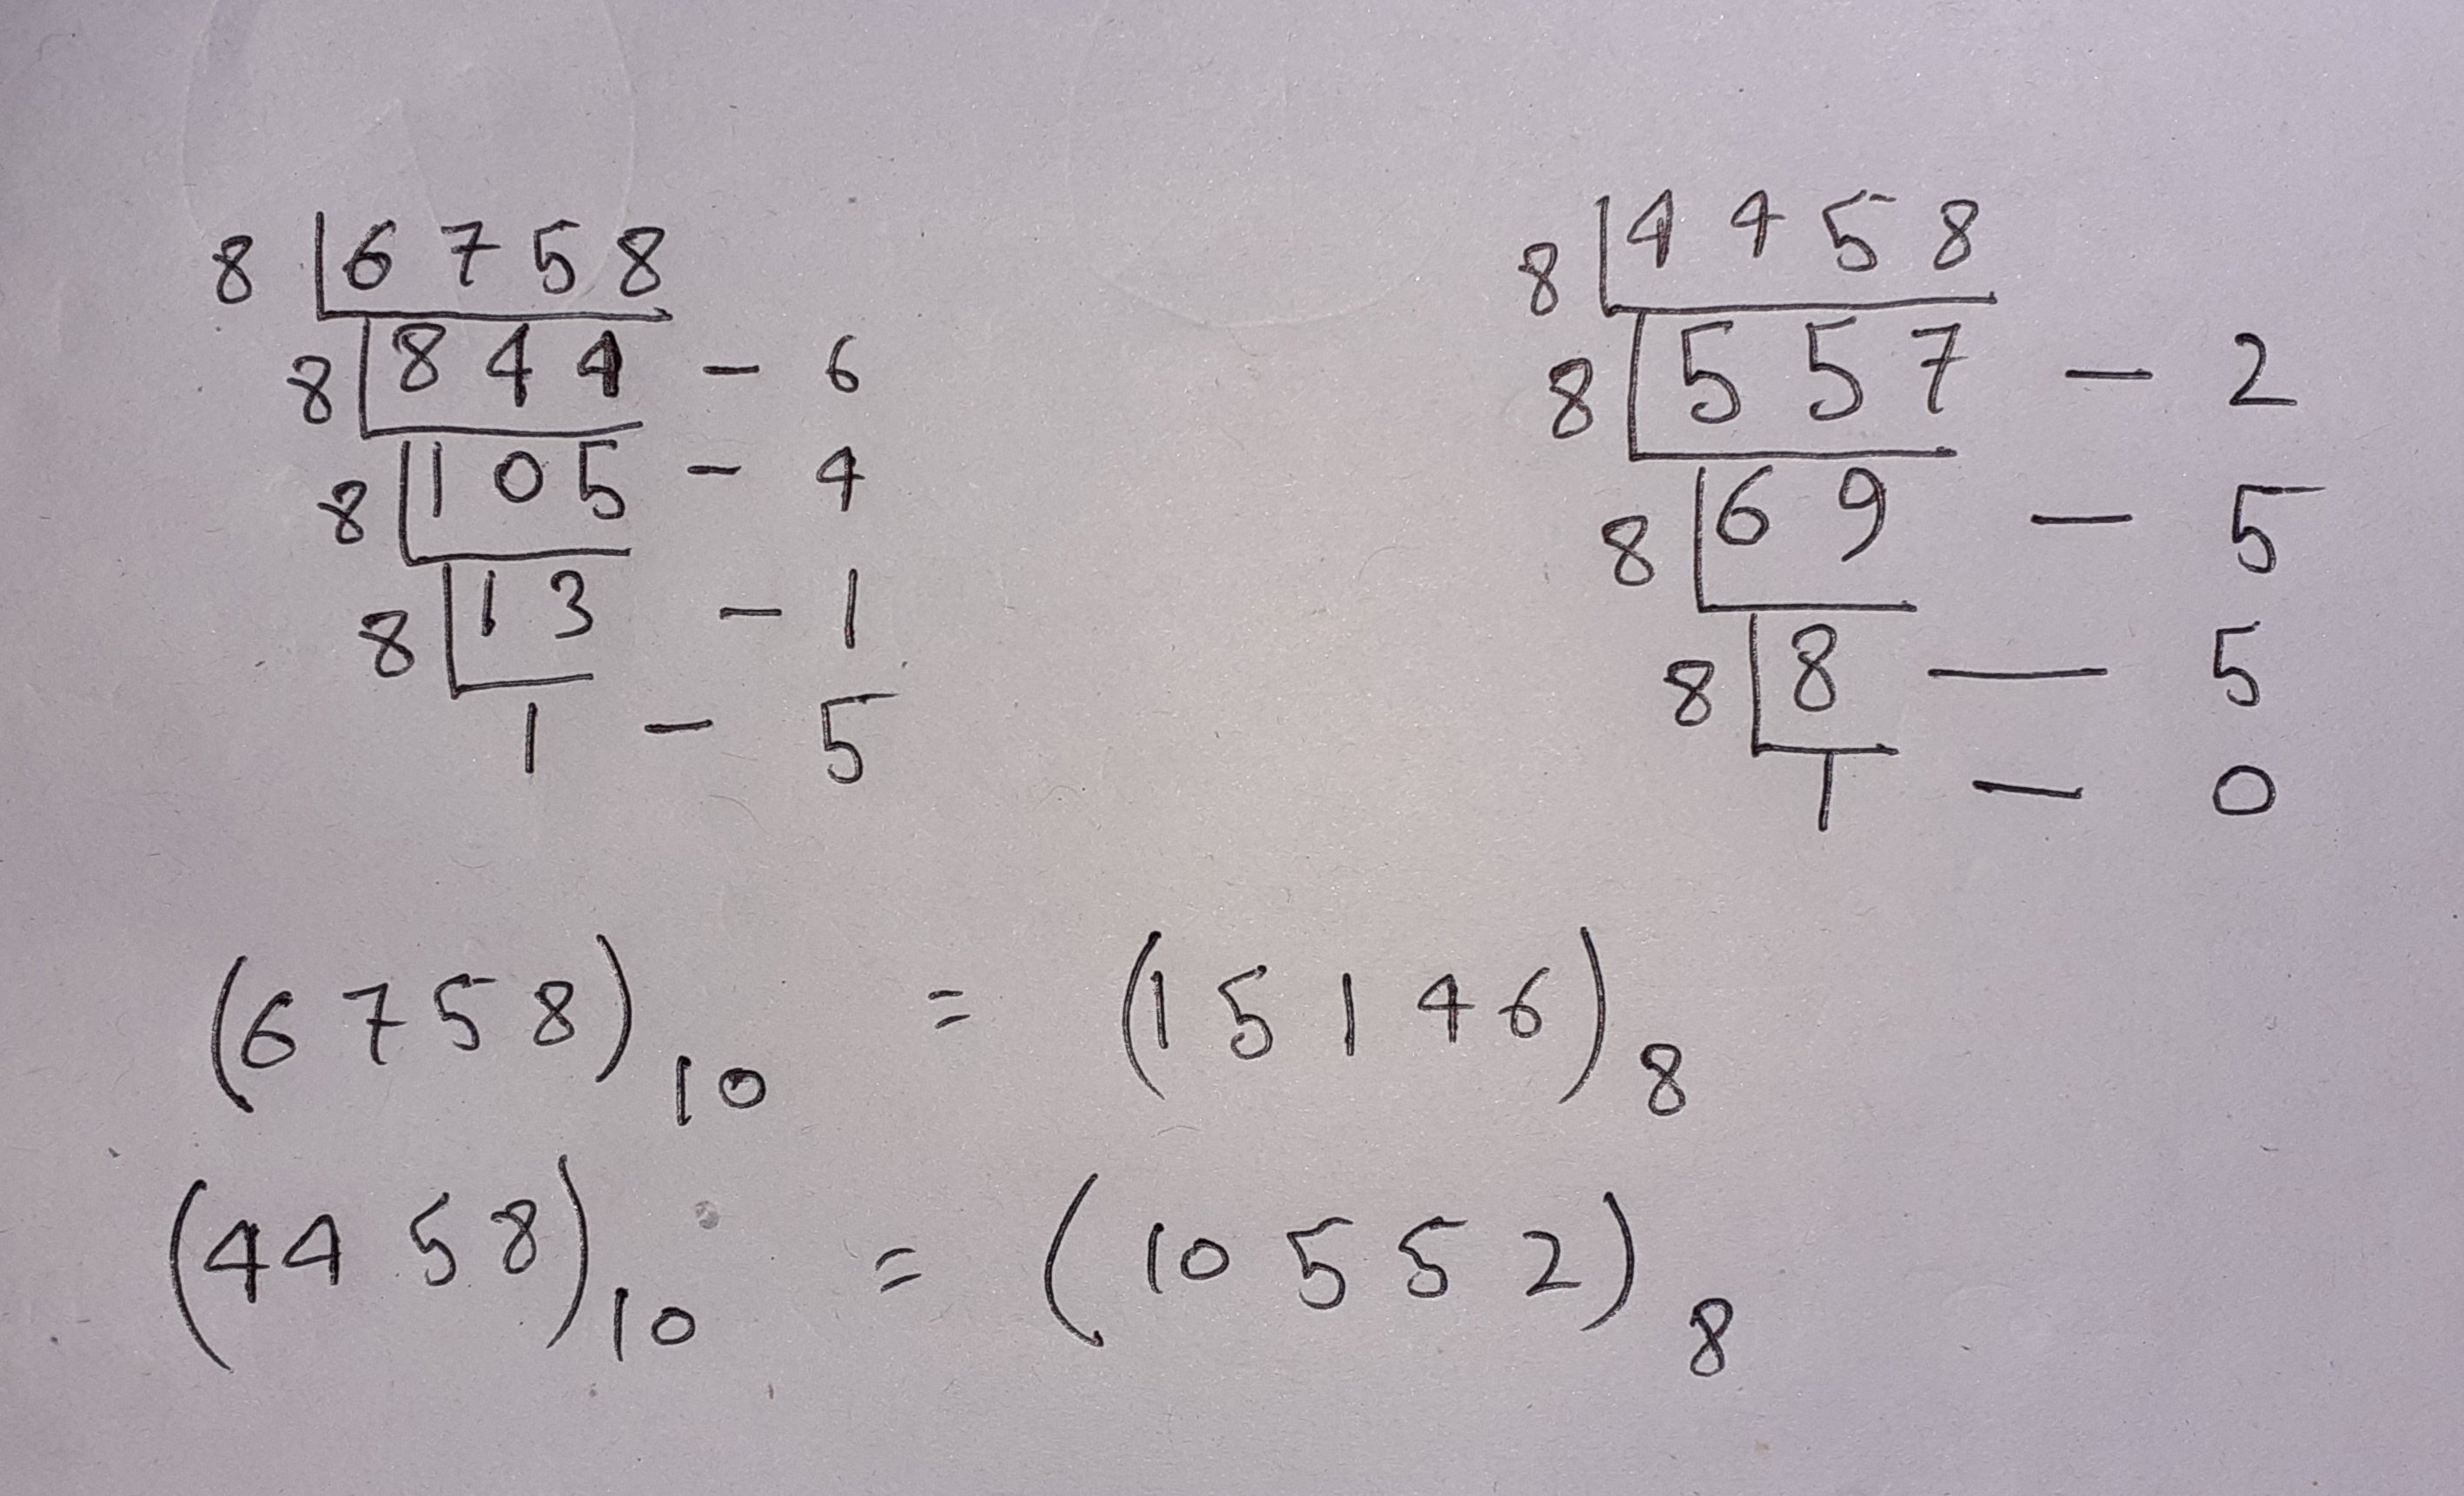 8 6758
8 844 - 6
8 105 - 4
8 13 - 1
1 - 5
8 4458
8 557 - 2
8 69 - 5
8 8 - 5
1 - 0
(6758)10 = (15146)8
(4458)10 = (10552)8